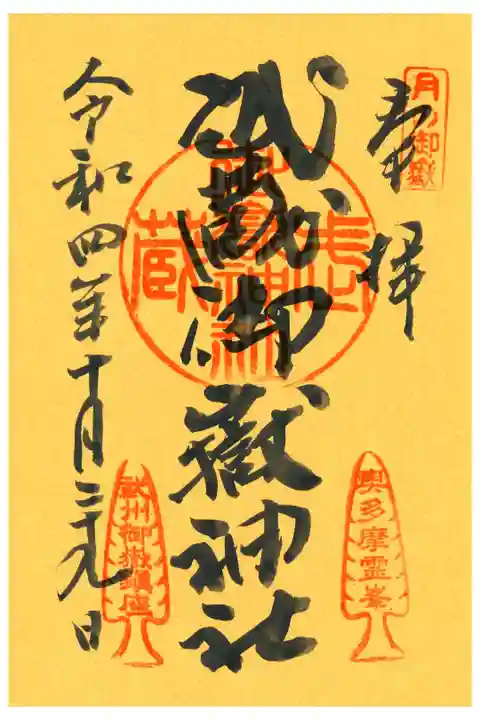 月の御嶽
奉拝
奥多摩霊峯
武蔵御嶽神社
武蔵御嶽神社
令和四年十月二十九日
武州御嶽鎮座